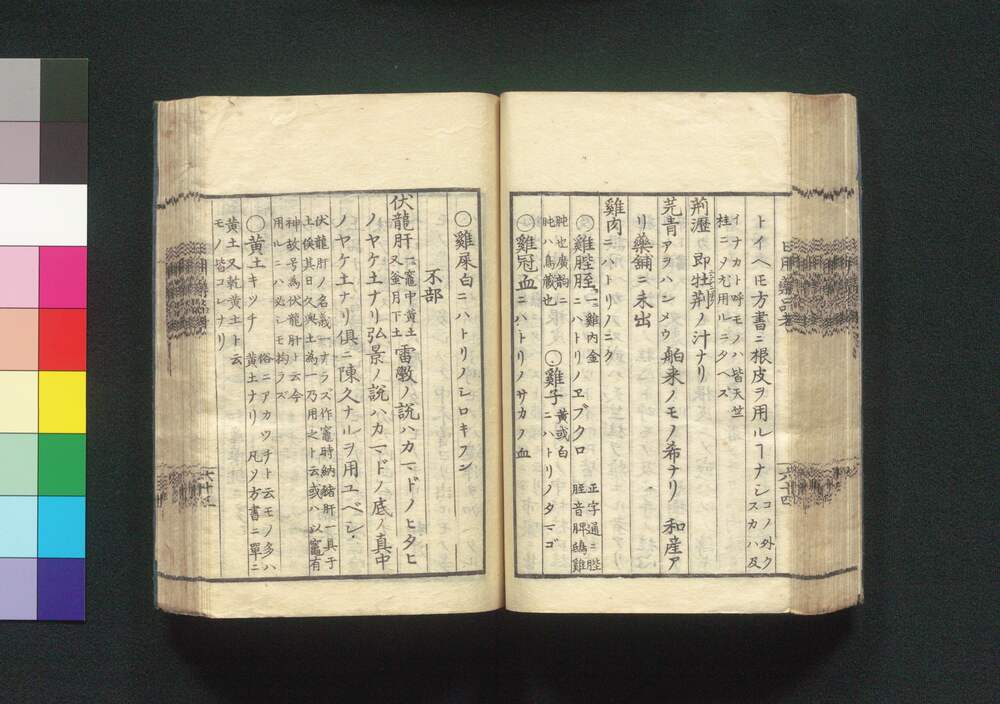 トイヘ𪜈方書ニ根皮ヲ用ルヿナシ
コノ外ク
スカハ及
イナカト呼モノハ皆天竺
桂ニソ尤用ルニタヘズ
荊瀝カ即牡荊ノ汁ナリ
芫青アヲハンメウ舶来ノモノ希ナリ 和産ア
リ藥鋪ニ未出
雞肉ニハトリノニク
○雞膍胵一雞內金
ニハトリノヱブクロ
正字通ニ膍
胵音脾鴟雞
肫也廣韻ニ
肫ハ鳥藏也
○雞子黃或白
ニハトリノタマゴ
○雞冠血ニハトリノサカノ血
○雞屎白ニハトリノシロキフン
不部
伏龍肝一竈中黄土
又釜月下土
雷斆ノ說ハカマドノヒタヒ
ノヤケ土ナリ弘景ノ說ハカマドノ底ノ真中
ノヤケ土ナリ俱ニ陳久ナルヲ用ユベシ
伏龍肝ノ名義一ナラズ作竈時納豬肝一具于
土俟其日久與土為一乃用之ト云或ハ以竈有
神故号為伏龍肝ト云今
用ルニハ必シモ拘ラズ
○黄土キツチ
俗ニアカツチト云モノ多ハ
黄土ナリ凡ソ方書ニ單ニ
黄土又乾黄土ト云
モノ皆コレナリ
日用藥品考
六十四
六十五